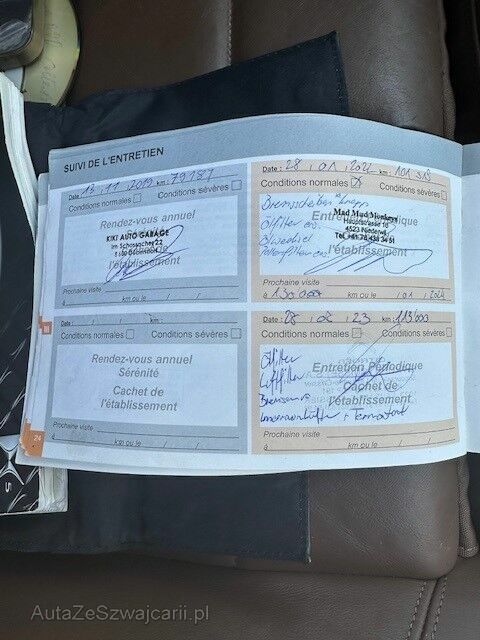 SUIVI DE L'ENTRETIEN
Date : 13 . 11 . 2019 km : 79187
Conditions normales Conditions sévères
Rendez-vous annuel
KIKI AUTO GARAGE
Im Schossacher 22
l'établissement
Prochaine visite
à km ou le / /
Date : 28 . 01 . 2022 km : 101 318
Conditions normales Conditions sévères
Bremsscheiben knapp
Ölfilter
Mad Mud Monkeys
Hauptstrasse 16
4523 Niederwil
Tel.
l'établissement
Prochaine visite
à 130.000 km ou le / 01 / 2024
Date : / / km :
Conditions normales Conditions sévères
Rendez-vous annuel
Sérénité
Cachet de
l'établissement
Prochaine visite
à km ou le / /
Date : 28 . 02 . 23 km : 113'000
Conditions normales Conditions sévères
Ölfilter
Luftfilter
Entretien Périodique
Cachet de
l'établissement
Prochaine visite
à km ou le / /
24
AutaZeSzwajcarii.pl